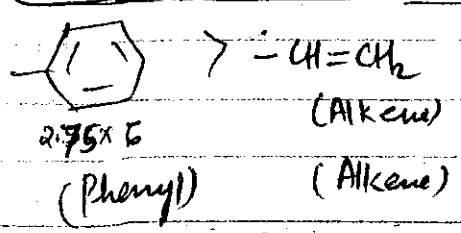 > – CH=CH₂
(Alkene)
2.75×6
(Phenyl) (Alkene)